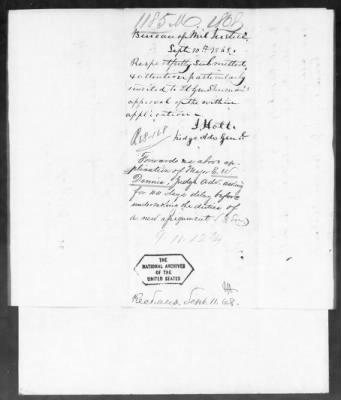 1185 M.O. 1868
Bureau of Mil. Justice,
Sept. 10th 1868.
Respectfully submitted,
& attention particularly
invited to Lt Gen Sherman's
approval of the within
application.
J. Holt.
Judge Adv. Genl.
Forwards the above ap-
plication of Major E. W.
Dennis, Judge Adv. asking
for 20 days delay before
undertaking the duties of
a new assignment
THE
NATIONAL ARCHIVES
OF THE
UNITED STATES
Rec'd Sept. 11. 68.